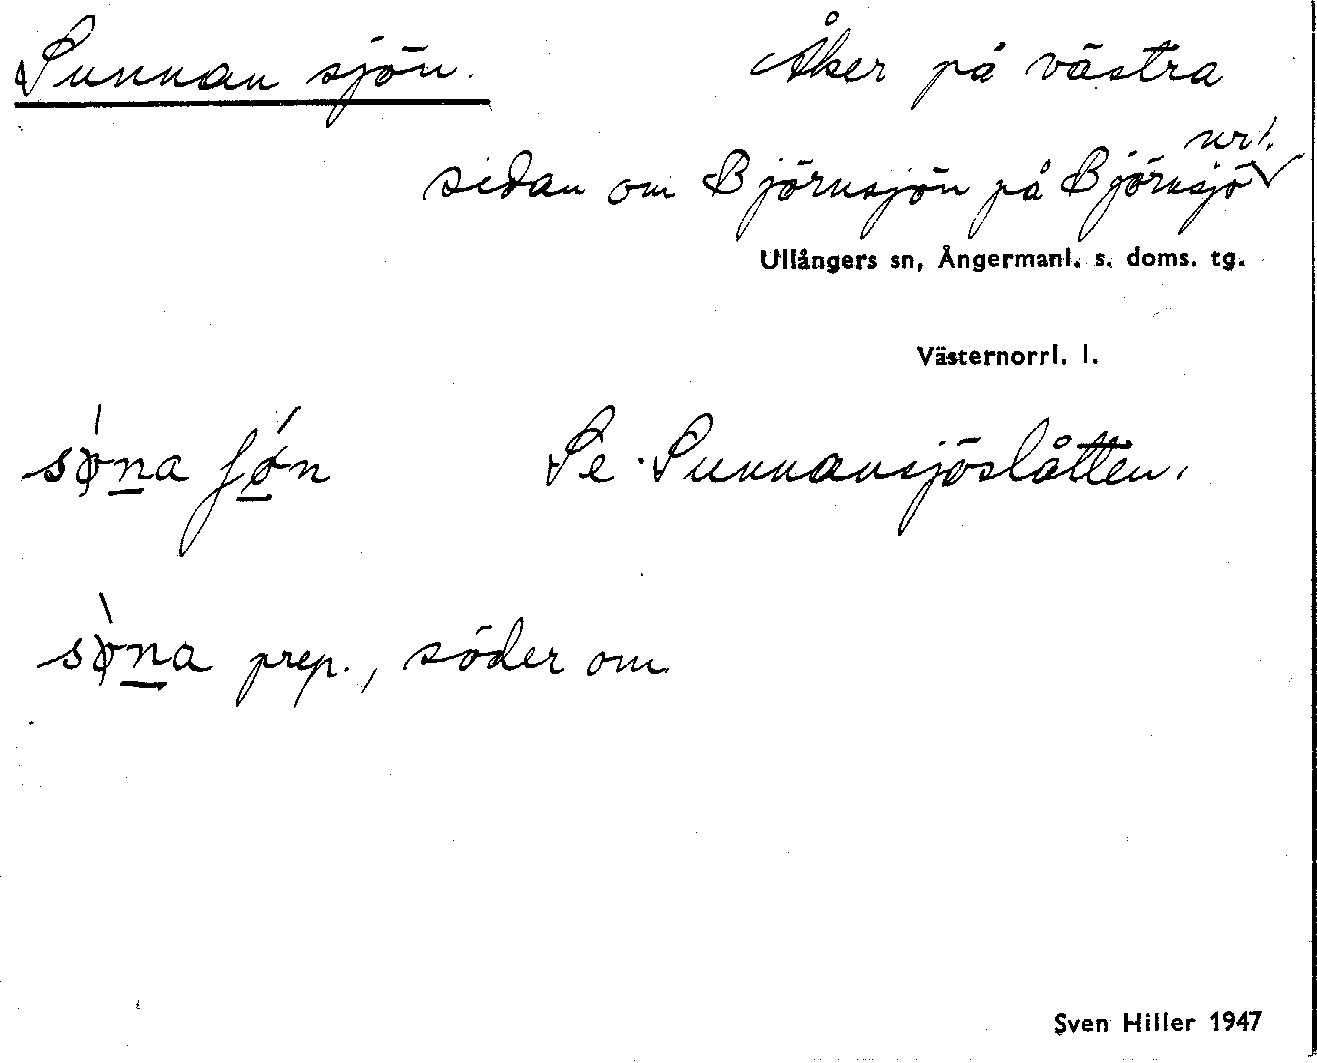 Sunnan sjön. Åker på västra
sidan om Björnsjön på Björnsjö nr 1.
Ullångers sn, Ångermanl. s. doms. tg.
Västernorrl. l.
sø̀na ʃǿn Se Sunnansjöslåtten.
sø̀na prep., söder om
Sven Hiller 1947